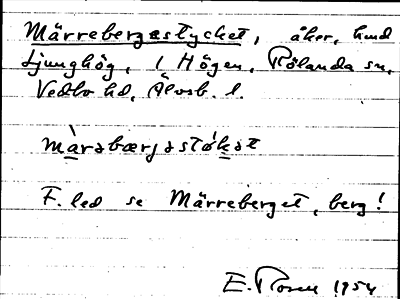 Märrebergsstycket, åker, hmd
Ljunghög, 1 Högen, Rölanda sn,
Vedbo hd, Älvsb. l.
màrəbærjsstøkət
F. led se Märreberget, berg!
E. Rosen 1954